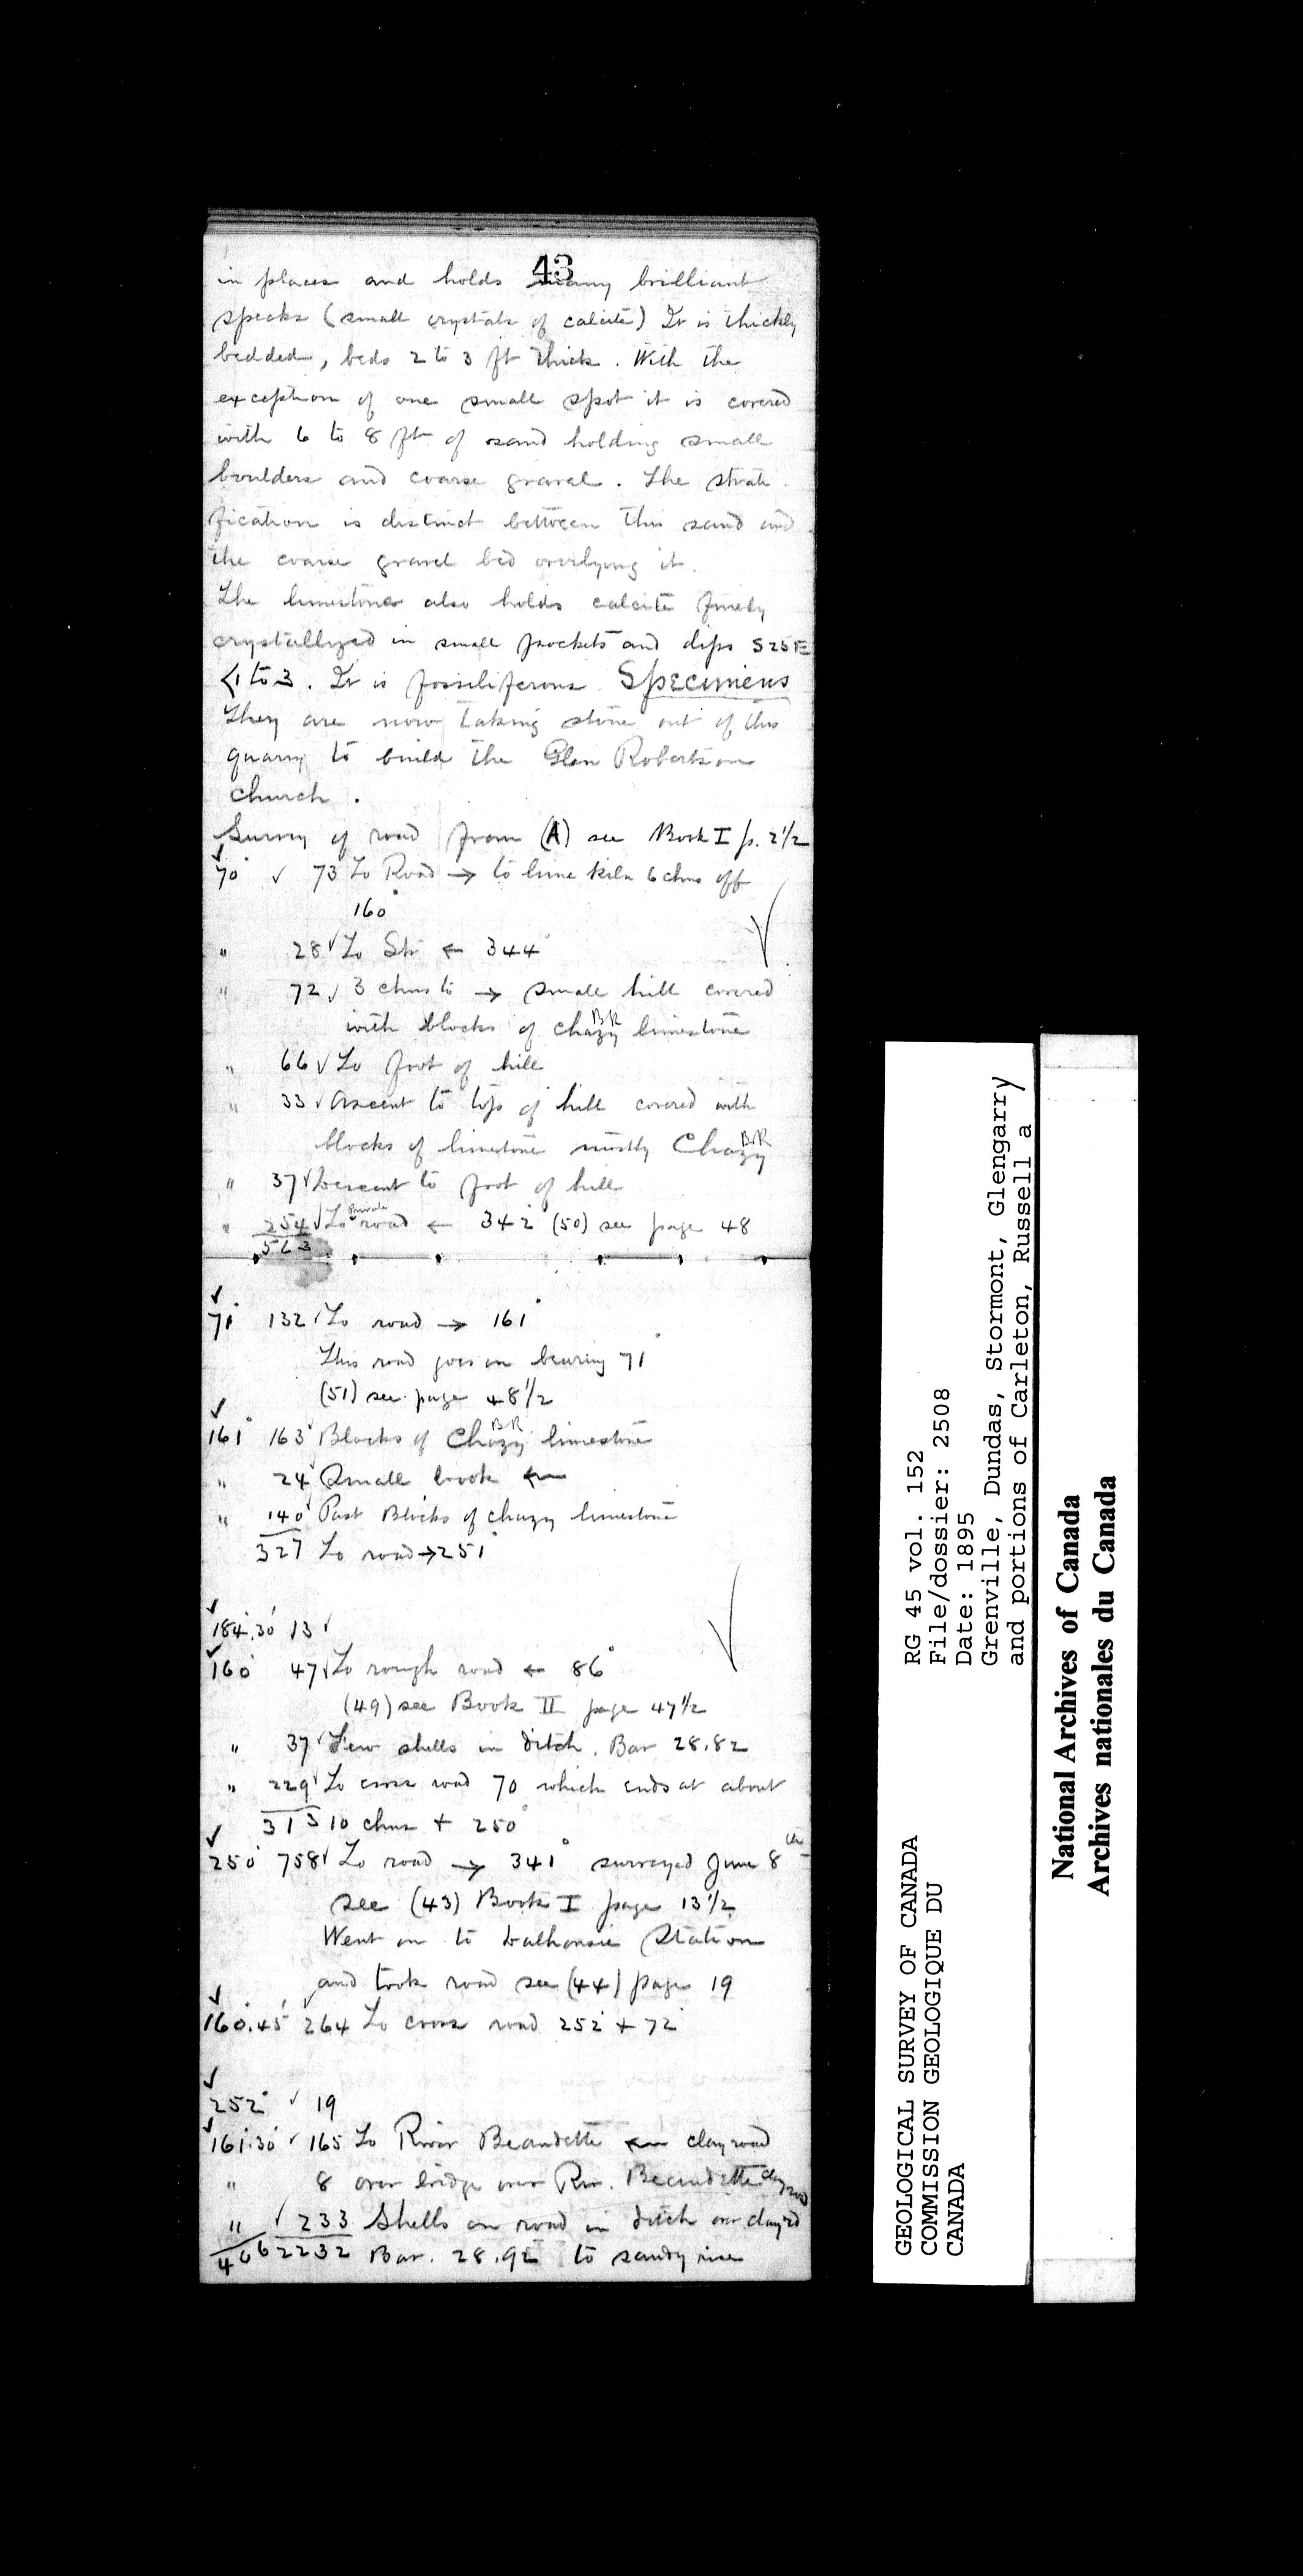 43
in places and holds many brilliant
specks (small crystals of calcite) It is thickly
bedded, beds 2 to 3 ft thick. With the
exception of one small spot it is covered
with 6 to 8 ft of sand holding small
boulders and coarse gravel. The strati-
fication is distinct between this sand and
the coarse gravel bed overlying it.
The limestone also holds calcite finely
crystallized in small pockets and dips S25E
<1 to 3. It is fossiliferous Specimens
They are now taking stone out of this
quarry to build the Glen Robertson
church.
Survey of road from (A) see Book I p. 2½
70° √ 73 To Road → to lime kiln 6 chns off
160°
" 28 √ To Str ← 344°
" 72 √ 3 chns to → small hill covered
with blocks of chazy BR limestone
" 66 √ To foot of hill
" 33 √ Ascent to top of hill covered with
blocks of limestone mostly Chazy BR
" 37 √ Descent to foot of hill
" 254 √ To private road ← 342° (50) see page 48
563
√
71° 132 √ To road → 161°
This road goes on bearing 71°
(51) see page 48½
√
161° 163 √ Blocks of Chazy BR limestone
" 24 √ Small brook ←
" 140 √ Past Blocks of chazy limestone
327 To road → 251°
√
184°.30' 13 √
√
160° 47 √ To rough road ← 86°
(49) see Book II page 47½
" 37 √ Few shells in ditch. Bar 28.82
" 229 √ To cross road 70 which ends at about
313 10 chns + 250°
√
250° 758 √ To road → 341° surveyed June 8th
see (43) Book I page 13½
Went on to Dalhousie Station
and took road see (44) page 19
√
160°.45' 264 To cross road 252° + 72°
√
252° √ 19
√
161°.30' √ 165 To River Beaudette ← clay road
" 8 over bridge over Riv. Beaudette clay road
" √ 233 Shells on road in ditch over clay rd
406 2232 Bar. 28.92 to sandy rise
GEOLOGICAL SURVEY OF CANADA
COMMISSION GEOLOGIQUE DU
CANADA
RG 45 vol. 152
File/dossier: 2508
Date: 1895
Grenville, Dundas, Stormont, Glengarry
and portions of Carleton, Russell a
National Archives of Canada
Archives nationales du Canada